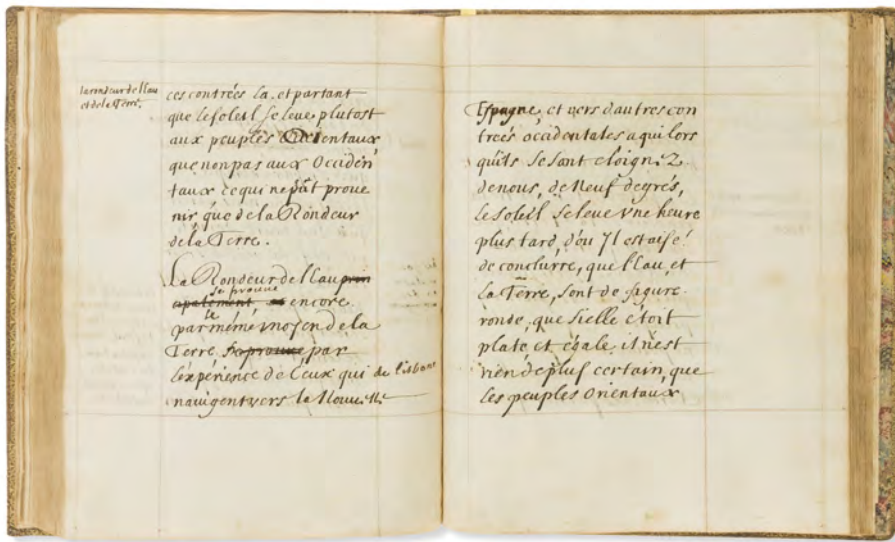 la rondeur de l'Eau
et de la Terre.
ces contrées la, et partant
que le soleil se leve plutost
aux peuples Orientaux
que non pas aux Occiden
taux ce qui ne pût prove
nir que de la Rondeur
de la Terre.
La Rondeur de l'Eau prin
se prouve
cipalement encore
le
par même moyen de la
Terre, se prouve par
l'expérience de Ceux qui de lisbone
navigent vers la Nouvelle
Espagne, et vers d'autres con
treés occidentales a qui lors
qu'ils se sont eloignez
de nous, de Neuf degrés,
le Soleil se leve Vne heure
plus tard, d'ou Il est aisé
de conclurre, que l'Eau, et
la Terre, sont de figure
ronde, que si elle étoit
plate et égale, il n'est
rien de plus certain, que
les peuples Orientaux